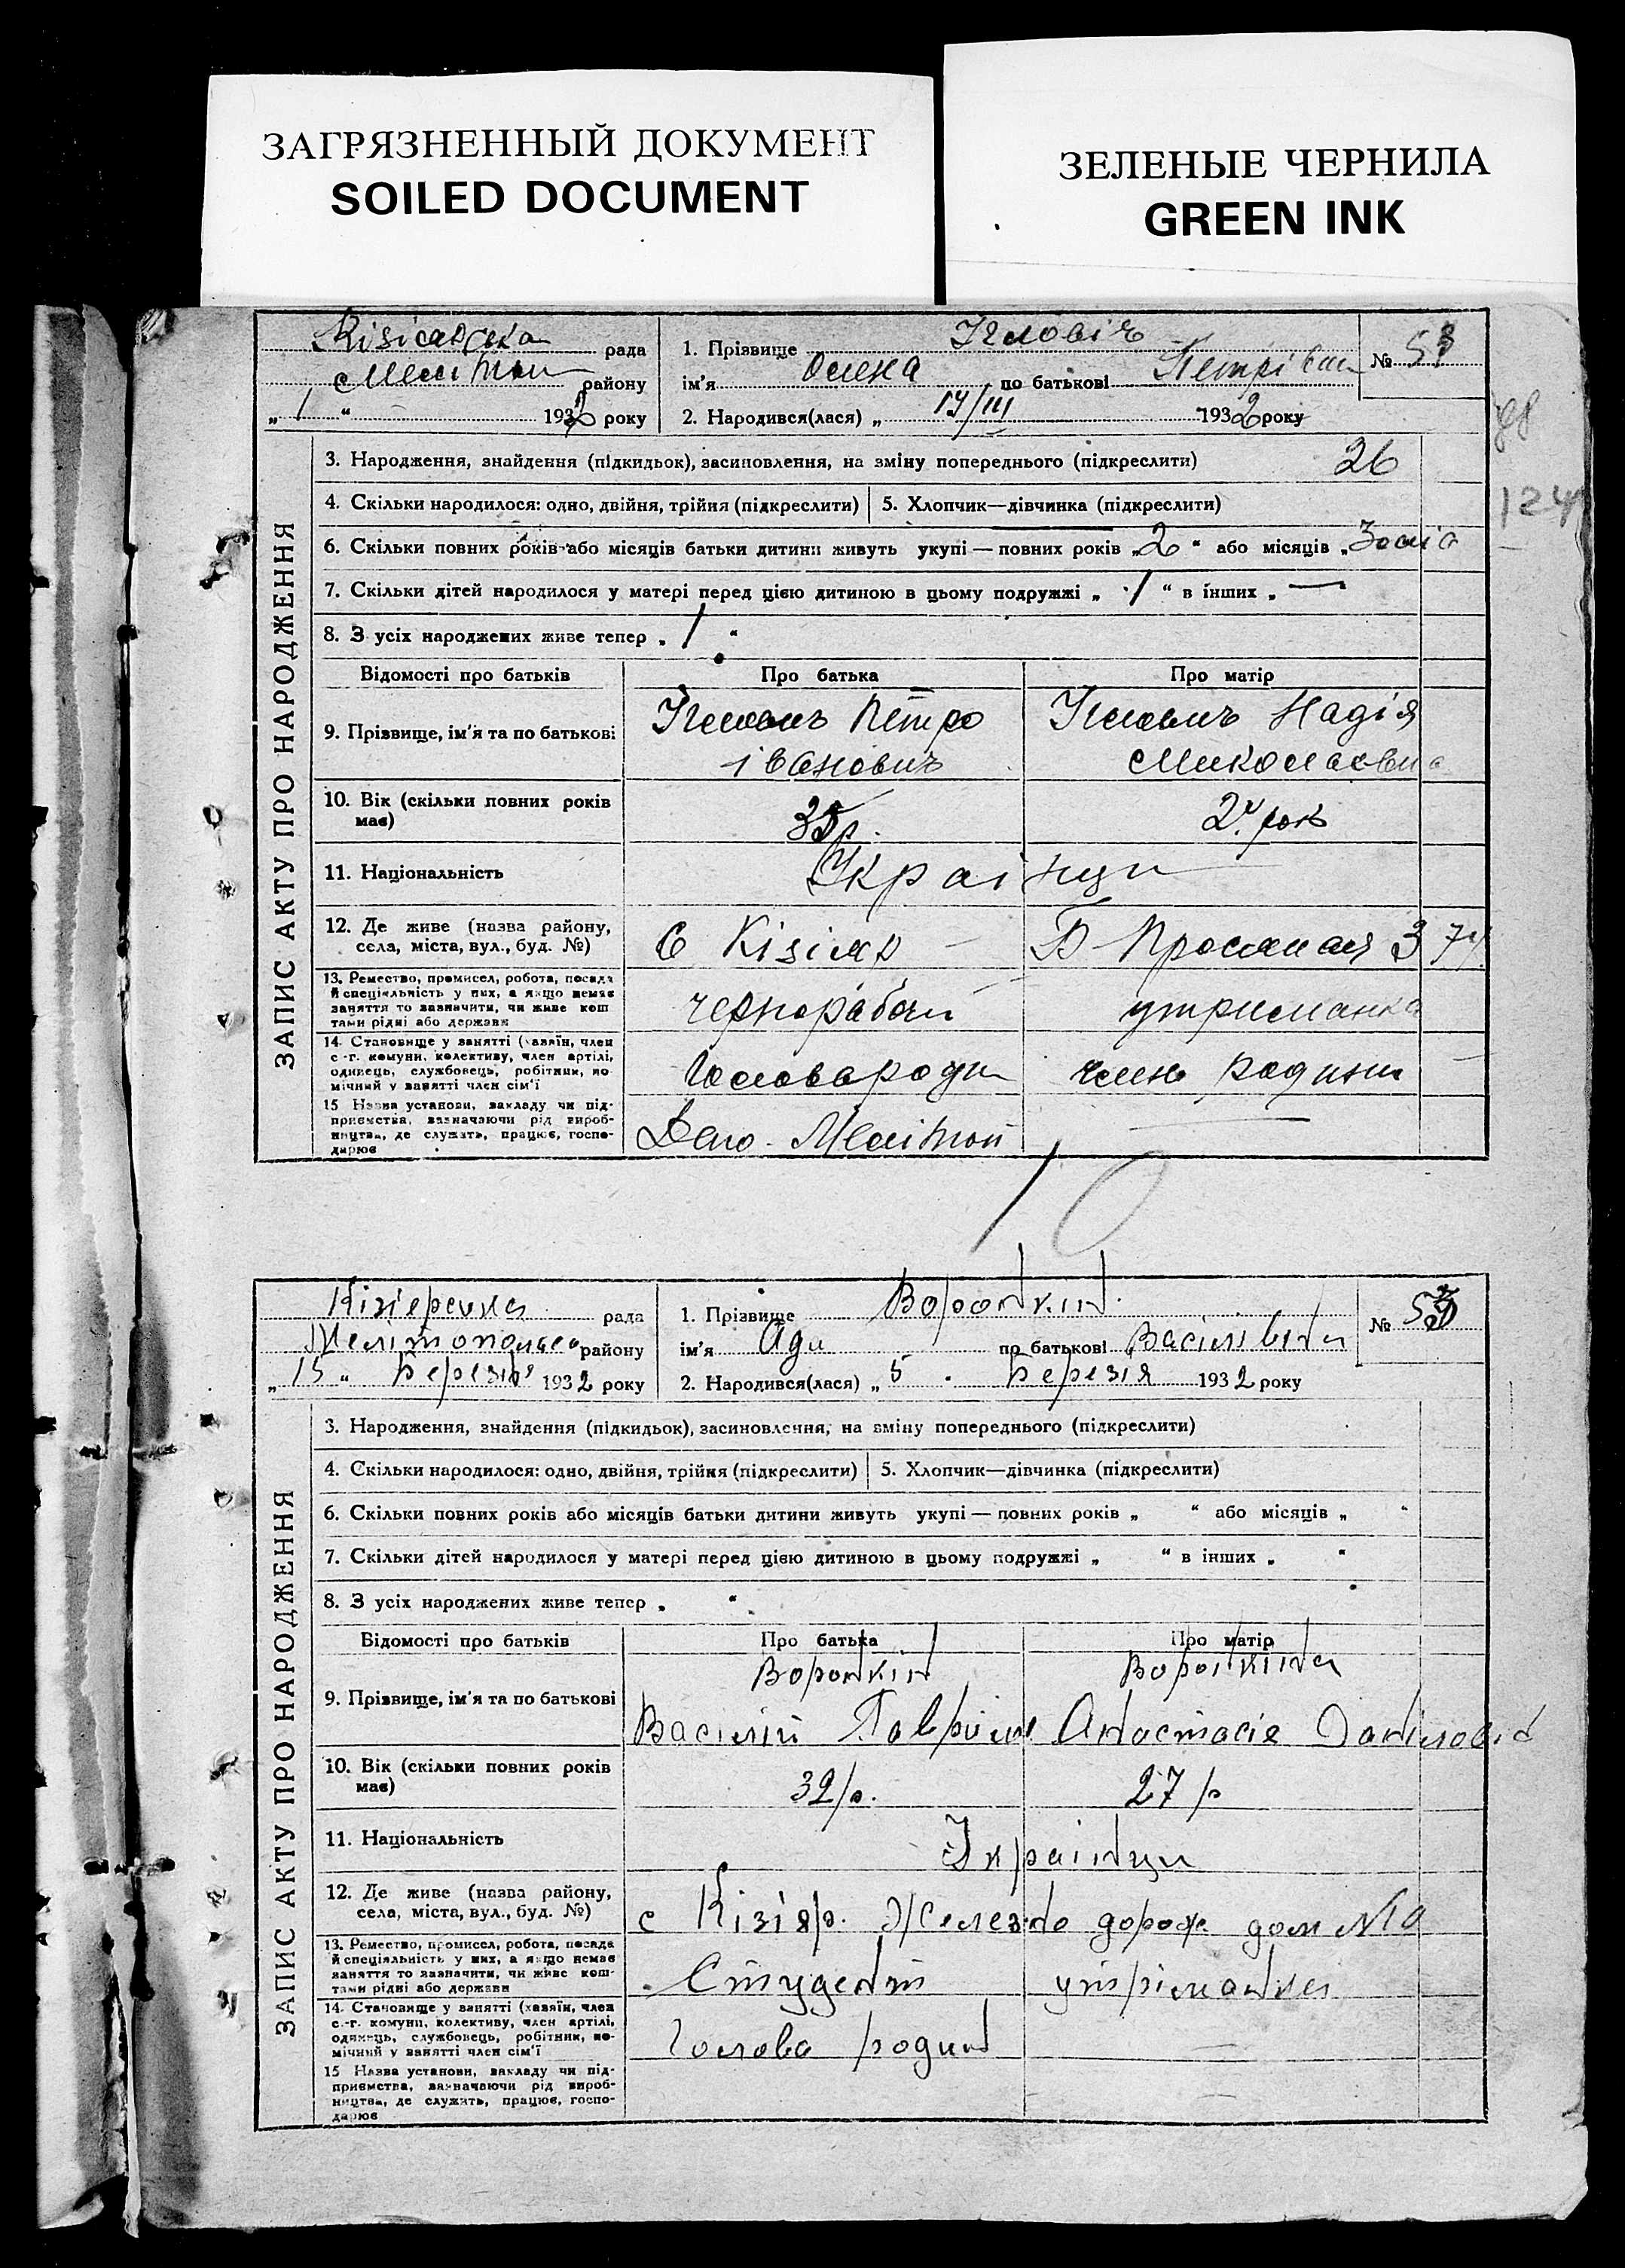 ЗАГРЯЗНЕННЫЙ ДОКУМЕНТ
SOILED DOCUMENT
ЗЕЛЕНЫЕ ЧЕРНИЛА
GREEN INK
ЗАПИС АКТУ ПРО НАРОДЖЕННЯ
рада
району
„ 1 “ 1932 року
1. Прізвище
ім'я Олена по батькові
№
2. Народився(лася) „ 1932 року
3. Народження, знайдення (підкидьок), засиновлення, на зміну попереднього (підкреслити) 26
124
4. Скільки народилося: одно, двійня, трійня (підкреслити) 5. Хлопчик—дівчинка (підкреслити)
6. Скільки повних років або місяців батьки дитини живуть укупі — повних років „ 2 “ або місяців „
7. Скільки дітей народилося у матері перед цією дитиною в цьому подружжі „ 1 “ в інших „ —
8. З усіх народжених живе тепер „ 1 “
Відомості про батьків Про батька Про матір
9. Прізвище, ім'я та по батькові
Петро Надія
івановичъ
10. Вік (скільки повних років має)
11. Національність Украінци
12. Де живе (назва району, села, міста, вул., буд. №) с Кізіяр
13. Ремество, промисел, робота, посада й спеціяльність у них, а якщо немає заняття то зазначити, чи живе коштами рідні або держави утриманка
14. Становище у занятті (хазяїн, член с.-г. комуни, колективу, член артілі, одинець, службовець, робітник, помічний у занятті член сім'ї
член родини
15 Назва установи, закладу чи підприємства, зазначаючи рід виробництва, де служить, працює, господарює
Депо
10
ЗАПИС АКТУ ПРО НАРОДЖЕННЯ
рада
району
„ 15 “ Березня 1932 року
1. Прізвище
ім'я Ада по батькові Васілівна
№
2. Народився(лася) „ 5 “ Березія 1932 року
3. Народження, знайдення (підкидьок), засиновлення, на зміну попереднього (підкреслити)
4. Скільки народилося: одно, двійня, трійня (підкреслити) 5. Хлопчик—дівчинка (підкреслити)
6. Скільки повних років або місяців батьки дитини живуть укупі — повних років „ “ або місяців „ “
7. Скільки дітей народилося у матері перед цією дитиною в цьому подружжі „ “ в інших „ “
8. З усіх народжених живе тепер „ “
Відомості про батьків Про батька Про матір
9. Прізвище, ім'я та по батькові
Василій Анастасія
10. Вік (скільки повних років має) 32 р. 27 р
11. Національність Украінци
12. Де живе (назва району, села, міста, вул., буд. №) с Кізіяр. Железно дорож дом №10
13. Ремество, промисел, робота, посада й спеціяльність у них, а якщо немає заняття то зазначити, чи живе коштами рідні або держави Студент утріманка
14. Становище у занятті (хазяїн, член с.-г. комуни, колективу, член артілі, одинець, службовець, робітник, помічний у занятті член сім'ї Голова родин
15 Назва установи, закладу чи підприємства, зазначаючи рід виробництва, де служить, працює, господарює